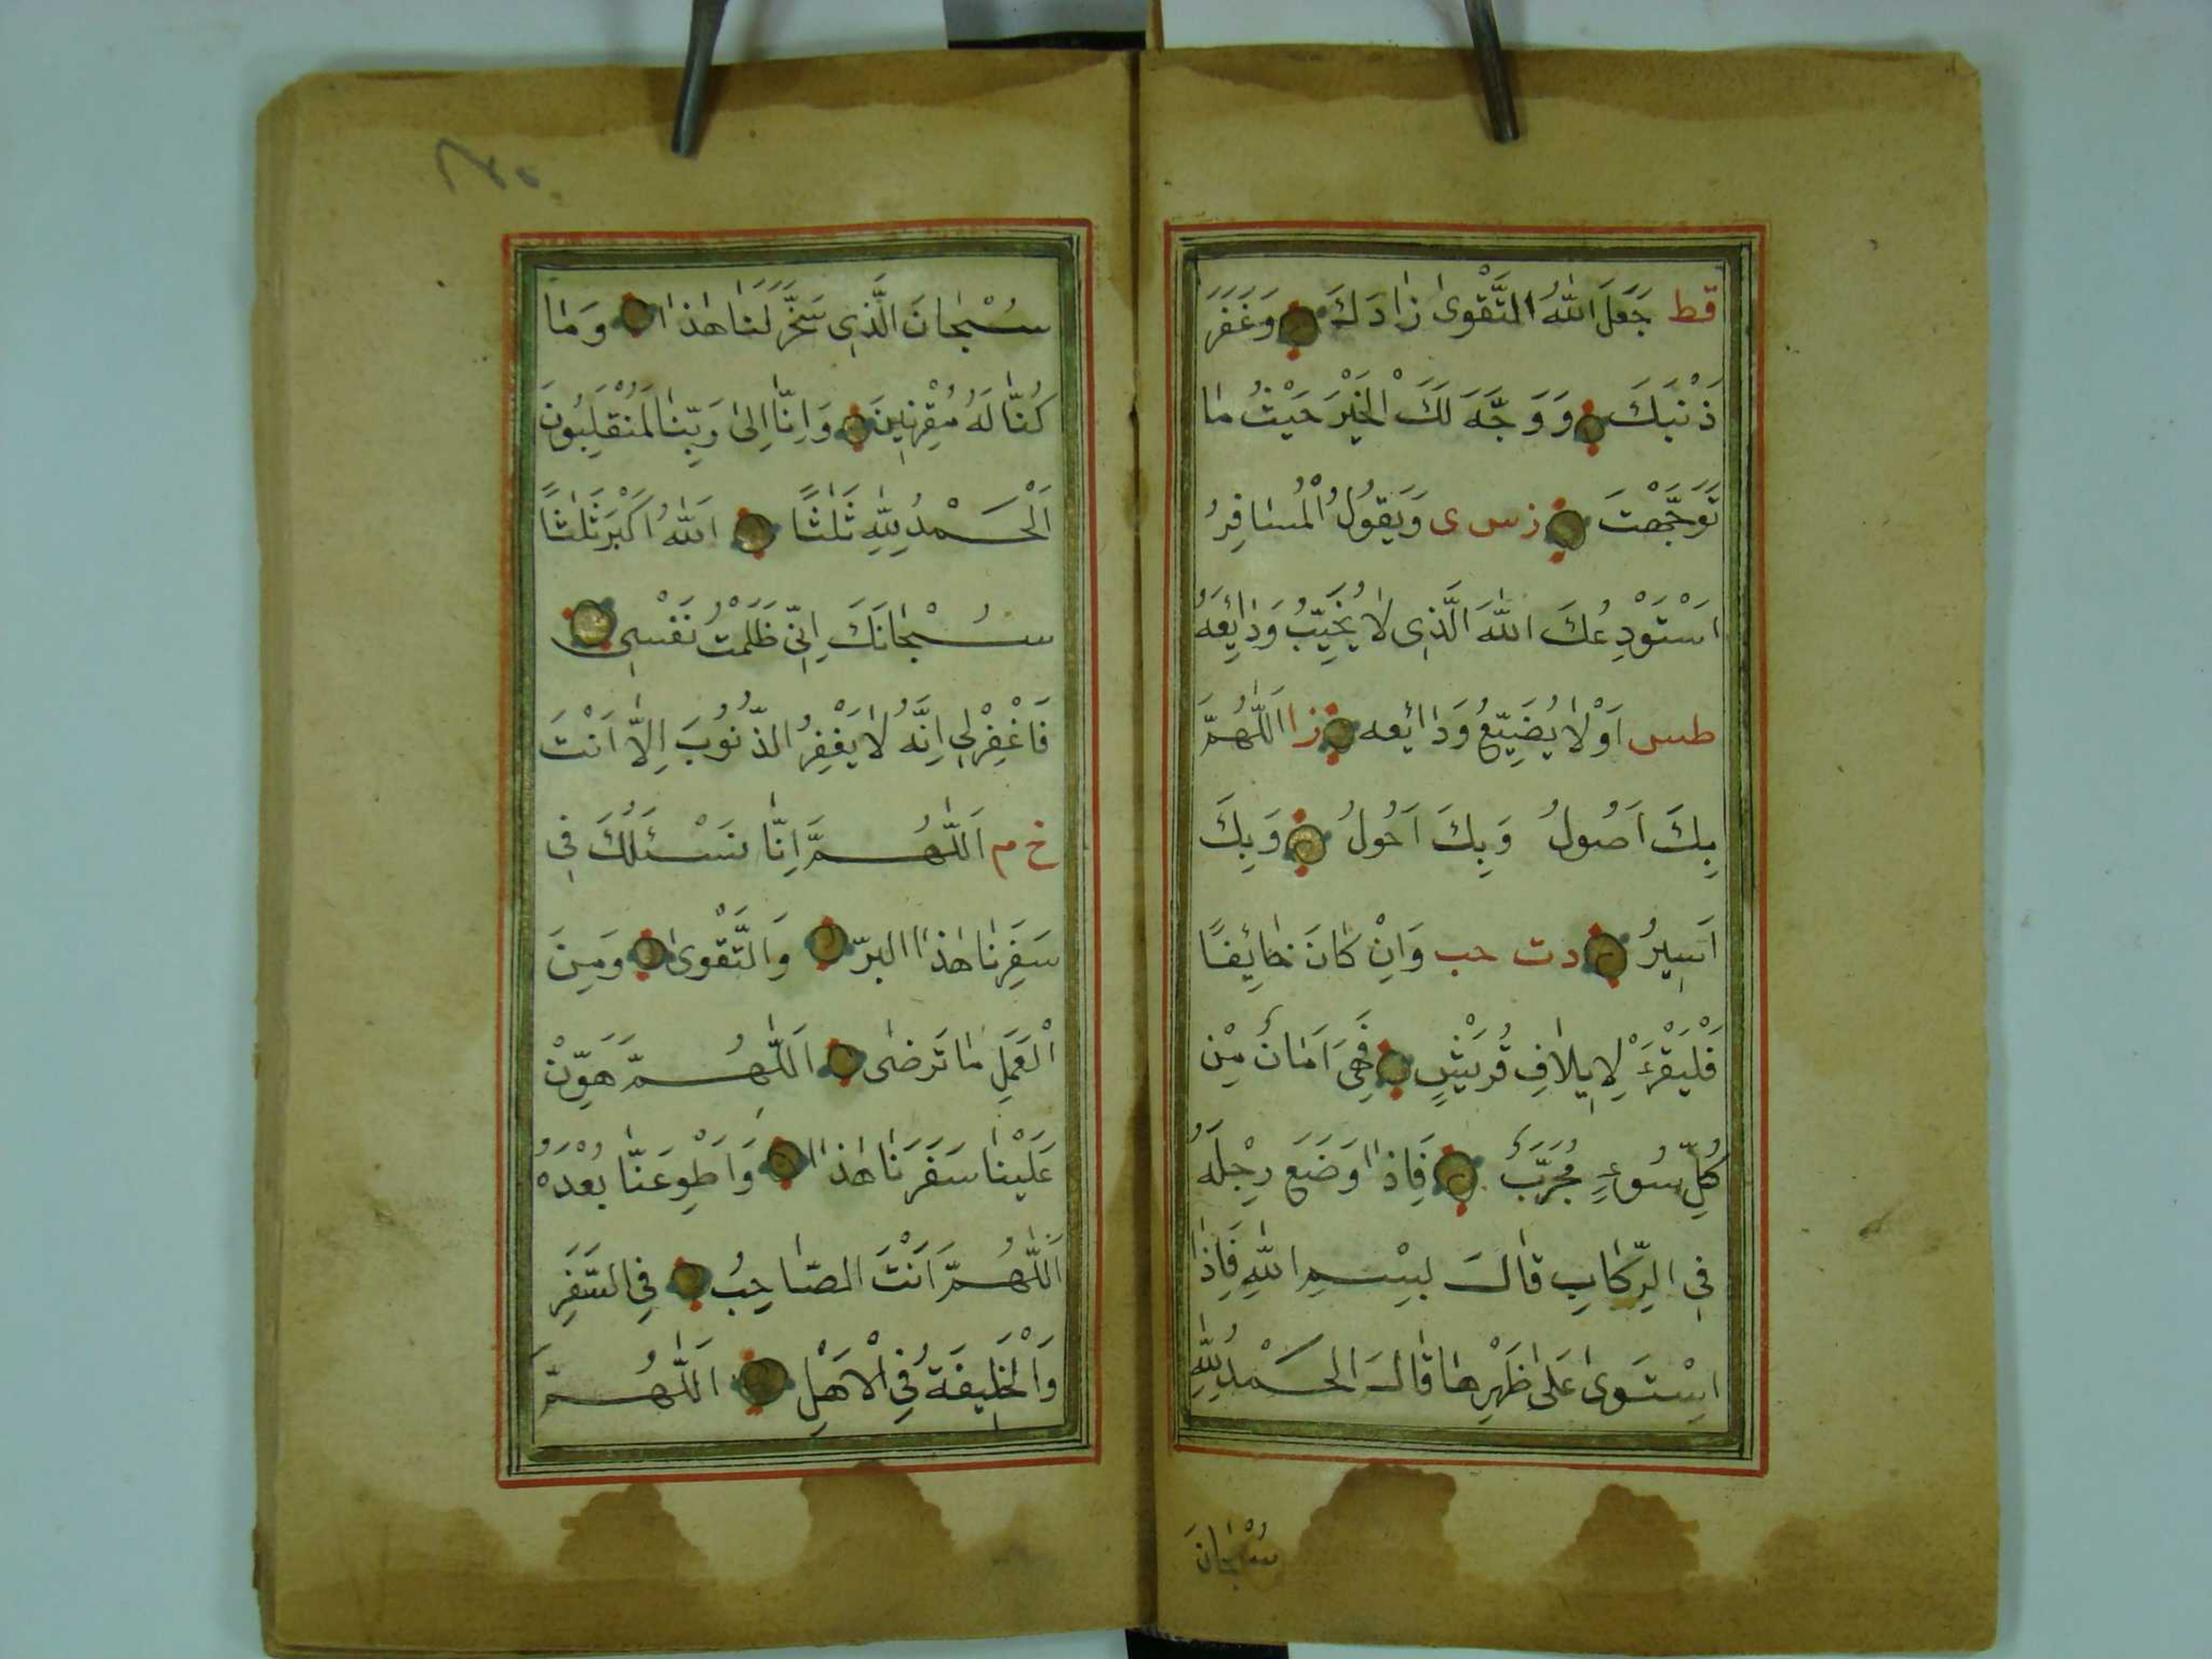 قط جَعَلَ اللّٰهُ التَّقْوٰى زٰادَكَ وَغَفَرَ
ذَنْبَكَ وَوَجَّهَ لَكَ الْخَيْرَ حَيْثُ مٰا
تَوَجَّهْتَ ز س ى وَيَقُولُ الْمُسٰافِرُ
اَسْتَوْدِعُكَ اللّٰهَ الَّذِى لٰا يُخَيِّبُ وَدٰايِعَهُ
طس اَوْ لٰا يُضَيِّعُ وَدٰايعه ز ا اَللّٰهُمَّ
بِكَ اَصُولُ وَبِكَ اَحُولُ وَبِكَ
اَسِيرُ د ت حب وَاِنْ كٰانَ خٰائِفًا
فَلْيَقْرَءْ لِاِيلٰافِ قُرَيْشٍ فَهِىَ اَمٰانٌ مِنْ
كُلِّ سُوءٍ مُجَرَّبٌ فَاِذٰا وَضَعَ رِجْلَهُ
فِى الرِّكٰابِ قٰالَ بِسْمِ اللّٰهِ فَاِذٰا
اسْتَوٰى عَلٰى ظَهْرِهٰا قٰالَ الْحَمْدُ لِلّٰهِ
سُبْحٰانَ
سُبْحٰانَ الَّذِى سَخَّرَ لَنٰا هٰذٰا وَمٰا
كُنّٰا لَهُ مُقْرِنِينَ وَاِنّٰا اِلٰى رَبِّنٰا لَمُنْقَلِبُونَ
اَلْحَمْدُ لِلّٰهِ ثَلٰثًا اَللّٰهُ اَكْبَرُ ثَلٰثًا
سُبْحٰانَكَ اِنِّى ظَلَمْتُ نَفْسِى
فَاغْفِرْلِى اِنَّهُ لٰا يَغْفِرُ الذُّنُوبَ اِلّٰا اَنْتَ
خ م اَللّٰهُمَّ اِنّٰا نَسْئَلُكَ فِى
سَفَرِنٰا هٰذٰا البرّ وَالتَّقْوٰى وَمِنَ
الْعَمَلِ مٰا تَرضٰى اَللّٰهُمَّ هَوِّنْ
عَلَيْنٰا سَفَرَنٰا هٰذٰا وَاَطْوِ عَنّٰا بُعْدَهُ
اَللّٰهُمَّ اَنْتَ الصّٰاحِبُ فِى السَّفَرِ
وَالْخَلِيفَةُ فِى الْاَهْلِ اَللّٰهُمَّ